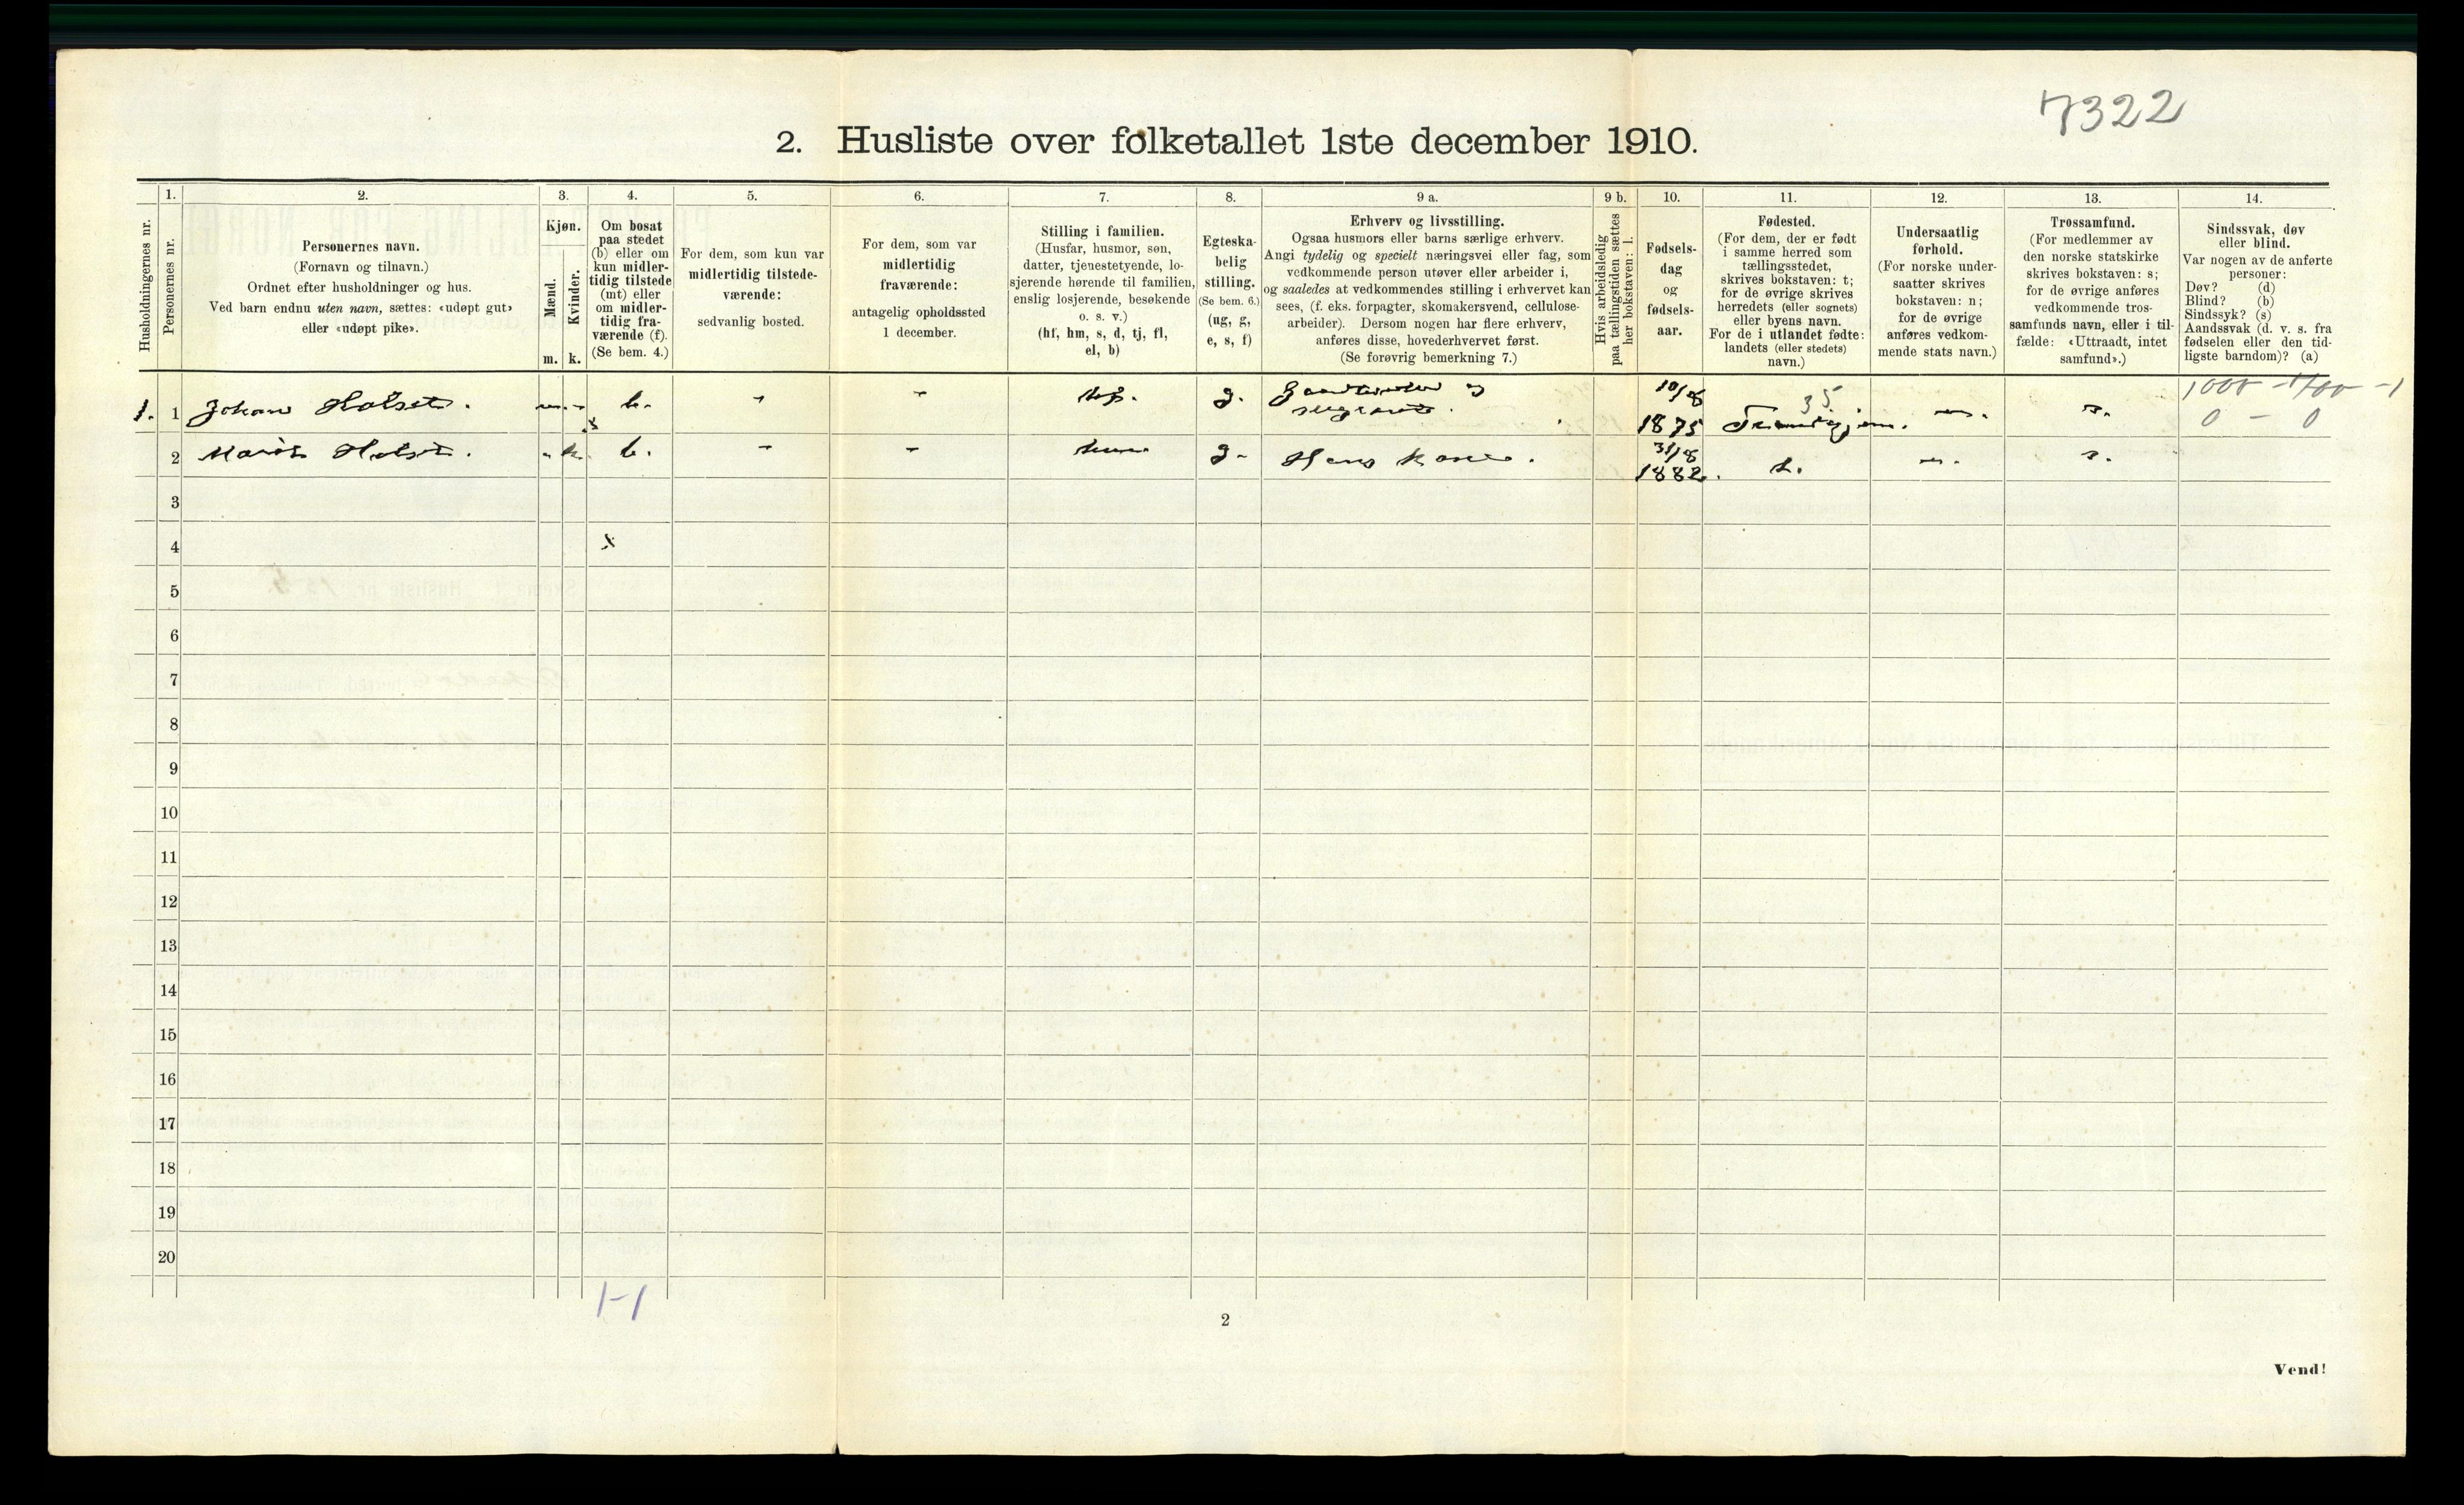 7322
2. Husliste over folketallet 1ste december 1910.
Husholdningernes nr.
1.
Personernes nr.
2.
Personernes navn.
(Fornavn og tilnavn.)
Ordnet efter husholdninger og hus.
Ved barn endnu uten navn, sættes: «udøpt gut»
eller «udøpt pike».
3.
Kjøn.
Mænd.
Kvinder.
m. k.
4.
Om bosat
paa stedet
(b) eller om
kun midler-
tidig tilstede
(mt) eller
om midler-
tidig fra-
værende (f).
(Se bem. 4.)
5.
For dem, som kun var
midlertidig tilstede-
værende:
sedvanlig bosted.
6.
For dem, som var
midlertidig
fraværende:
antagelig opholdssted
1 december.
7.
Stilling i familien.
(Husfar, husmor, søn,
datter, tjenestetyende, lo-
sjerende hørende til familien,
enslig losjerende, besøkende
o. s. v.)
(hf, hm, s, d, tj, fl,
el, b)
8.
Egteska-
belig
stilling.
(Se bem. 6.)
(ug, g,
e, s, f)
9 a.
Erhverv og livsstilling.
Ogsaa husmors eller barns særlige erhverv.
Angi tydelig og specielt næringsvei eller fag, som
vedkommende person utøver eller arbeider i,
og saaledes at vedkommendes stilling i erhvervet kan
sees, (f. eks. forpagter, skomakersvend, cellulose-
arbeider). Dersom nogen har flere erhverv,
anføres disse, hovederhvervet først.
(Se forøvrig bemerkning 7.)
9 b.
Hvis arbeidsledig
paa tællingstiden sættes
her bokstaven: l.
10.
Fødsels-
dag
og
fødsels-
aar.
11.
Fødested.
(For dem, der er født
i samme herred som
tællingsstedet,
skrives bokstaven: t;
for de øvrige skrives
herredets (eller sognets)
eller byens navn.
For de i utlandet fødte:
landets (eller stedets)
navn.)
12.
Undersaatlig
forhold.
(For norske under-
saatter skrives
bokstaven: n;
for de øvrige
anføres vedkom-
mende stats navn.)
13.
Trossamfund.
(For medlemmer av
den norske statskirke
skrives bokstaven: s;
for de øvrige anføres
vedkommende tros-
samfunds navn, eller i til-
fælde: «Uttraadt, intet
samfund».)
14.
Sindssvak, døv
eller blind.
Var nogen av de anførte
personer:
Døv? (d)
Blind? (b)
Sindssyk? (s)
Aandssvak (d. v. s. fra
fødselen eller den tid-
ligste barndom)? (a)
1. 1 Johan Holset. m. - b. - - hf. g. 10/8 1875 35 n. s.
0 - 0
2 Holset. - k. b. - - hm g. Hans kone. 31/8 1882. t. n. s.
3
4 x
5
6
7
8
9
10
11
12
13
14
15
16
17
18
19
20
1-1
2
Vend!